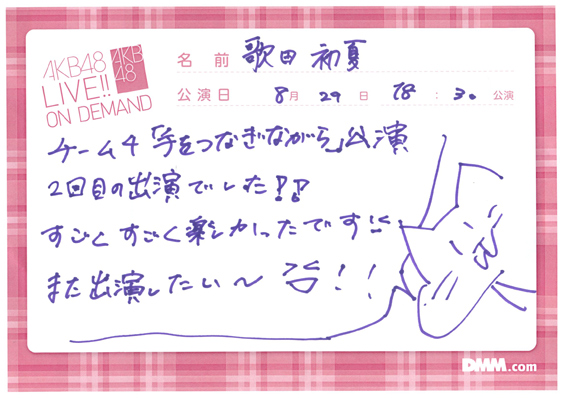 AKB48
LIVE!!
ON DEMAND
AKB
48
名前 歌田 初夏
公演日 8月29日 18:30公演
チーム4「手をつなぎながら」公演
2回目の出演でした!!
すごくすごく楽しかったです!!
また出演したい〜!!
DMM.com